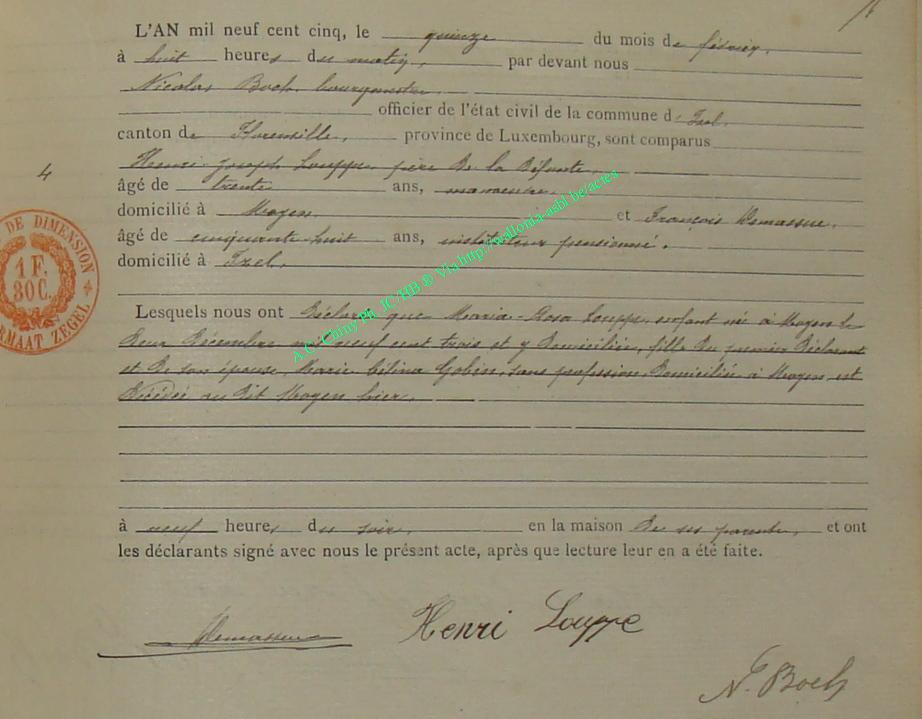 L'AN mil neuf cent cinq, le quinze du mois de février,
à huit heures du matin, par devant nous
Nicolas Boch, bourgmestre
officier de l'état civil de la commune d'Izel,
canton de Florenville, province de Luxembourg, sont comparus
Henri-Joseph Louppe, père de la défunte
âgé de trente ans, manœuvre,
domicilié à Moyen, et François Demasure,
âgé de cinquante-huit ans, instituteur pensionné,
domicilié à Izel,
4
DE DIMENSION
1 F.
80 C.
FORMAAT ZEGEL
Lesquels nous ont déclaré que Maria-Rosa Louppe, enfant née à Moyen le
deux décembre mil neuf cent trois et y domiciliée, fille du premier déclarant
et de son épouse, Marie Gobin, sans profession, domiciliée à Moyen, est
décédée au dit Moyen hier,
à neuf heures du soir, en la maison de ses parents, et ont
les déclarants signé avec nous le présent acte, après que lecture leur en a été faite.
Henri Louppe
N. Boch
A.C. Chiny Ph. JC/HB ® Via http://wallonia-asbl.be/actes